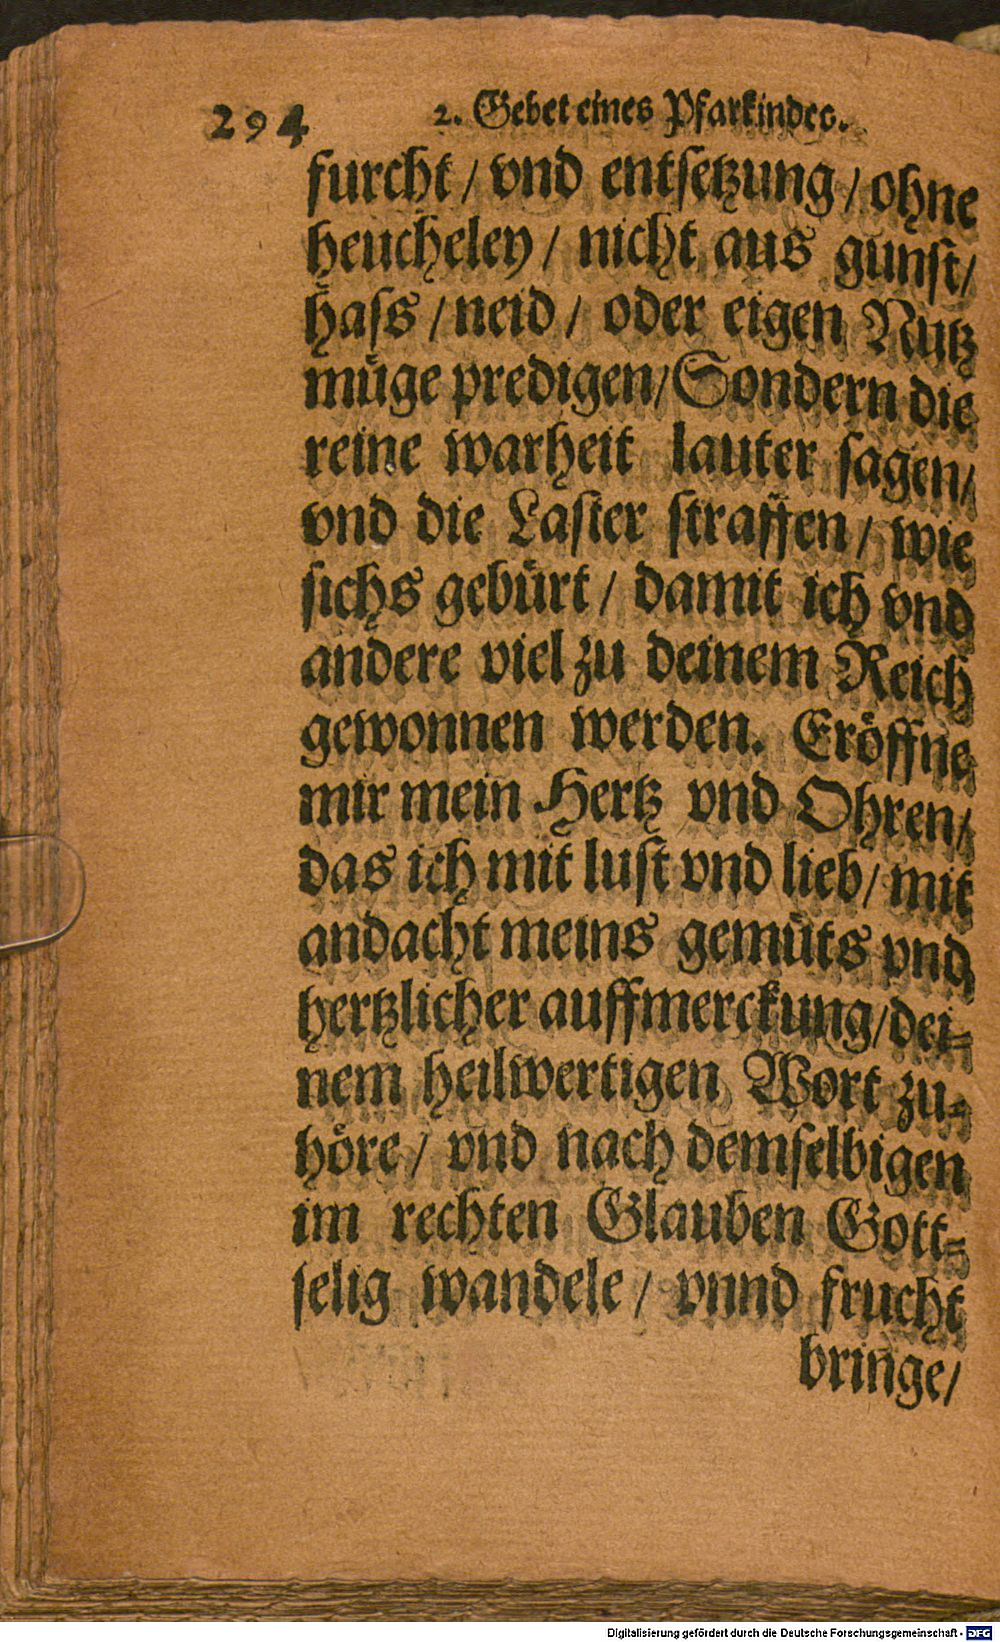 294 2. Gebet eines Pfarkindes.
furcht / vnd entsetzung / ohne
heucheley / nicht aus gunst /
hass / neid / oder eigen Nutz
müge predigen / Sondern die
reine warheit lauter sagen /
vnd die Laster straffen / wie
sichs gebürt / damit ich vnd
andere viel zu deinem Reich
gewonnen werden. Eröffne
mir mein Hertz vnd Ohren /
das ich mit lust vnd lieb / mit
andacht meins gemüts vnd
hertzlicher auffmerckung / dei-
nem heilwertigen Wort zu-
höre / vnd nach demselbigen
im rechten Glauben Gott-
selig wandele / vnnd frucht
bringe /
Digitalisierung gefördert durch die Deutsche Forschungsgemeinschaft - DFG